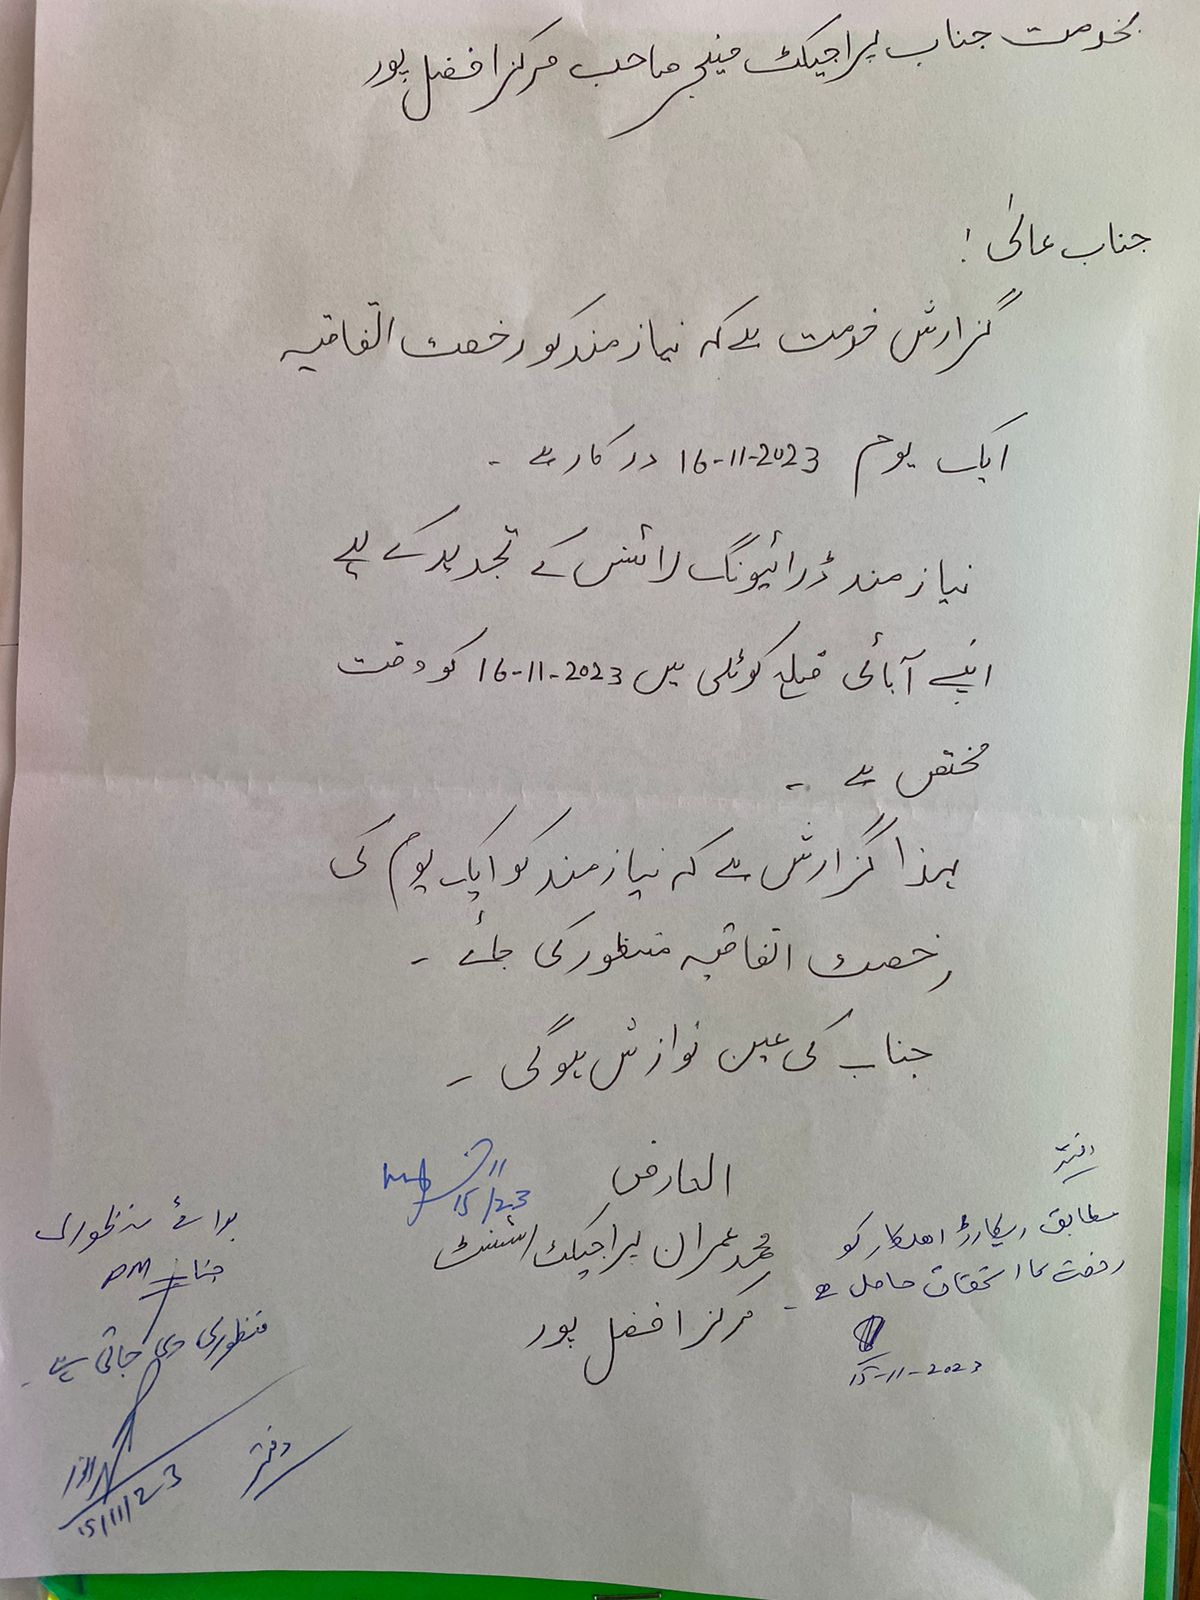 بخدمت جناب پراجیکٹ مینجر صاحب مرکز افضل پور
جناب عالیٰ !
گزارش خدمت ہے کہ نیاز مند کو رخصت اتفاقیہ
ایک یوم 16-11-2023 درکار ہے ۔
نیاز مند ڈرائیونگ لائسنس کے تجدید کے لیے
اپنے آبائی ضلع کوٹلی میں 16-11-2023 کو وقت
مختص ہے ۔
لہذا گزارش ہے کہ نیاز مند کو ایک یوم کی
رخصت اتفاقیہ منظور کی جائے ۔
جناب کی عین نوازش ہوگی ۔
العارض
محمد عمران پراجیکٹ اسسٹنٹ
مرکز افضل پور
15/11/23
دفتر
مطابق ریکارڈ اہلکار کو
رخصت کا استحقاق حاصل ہے ۔
15-11-2023
برائے منظوری
جناب PM
منظوری دی جاتی ہے ۔
15/11/23
دفتر